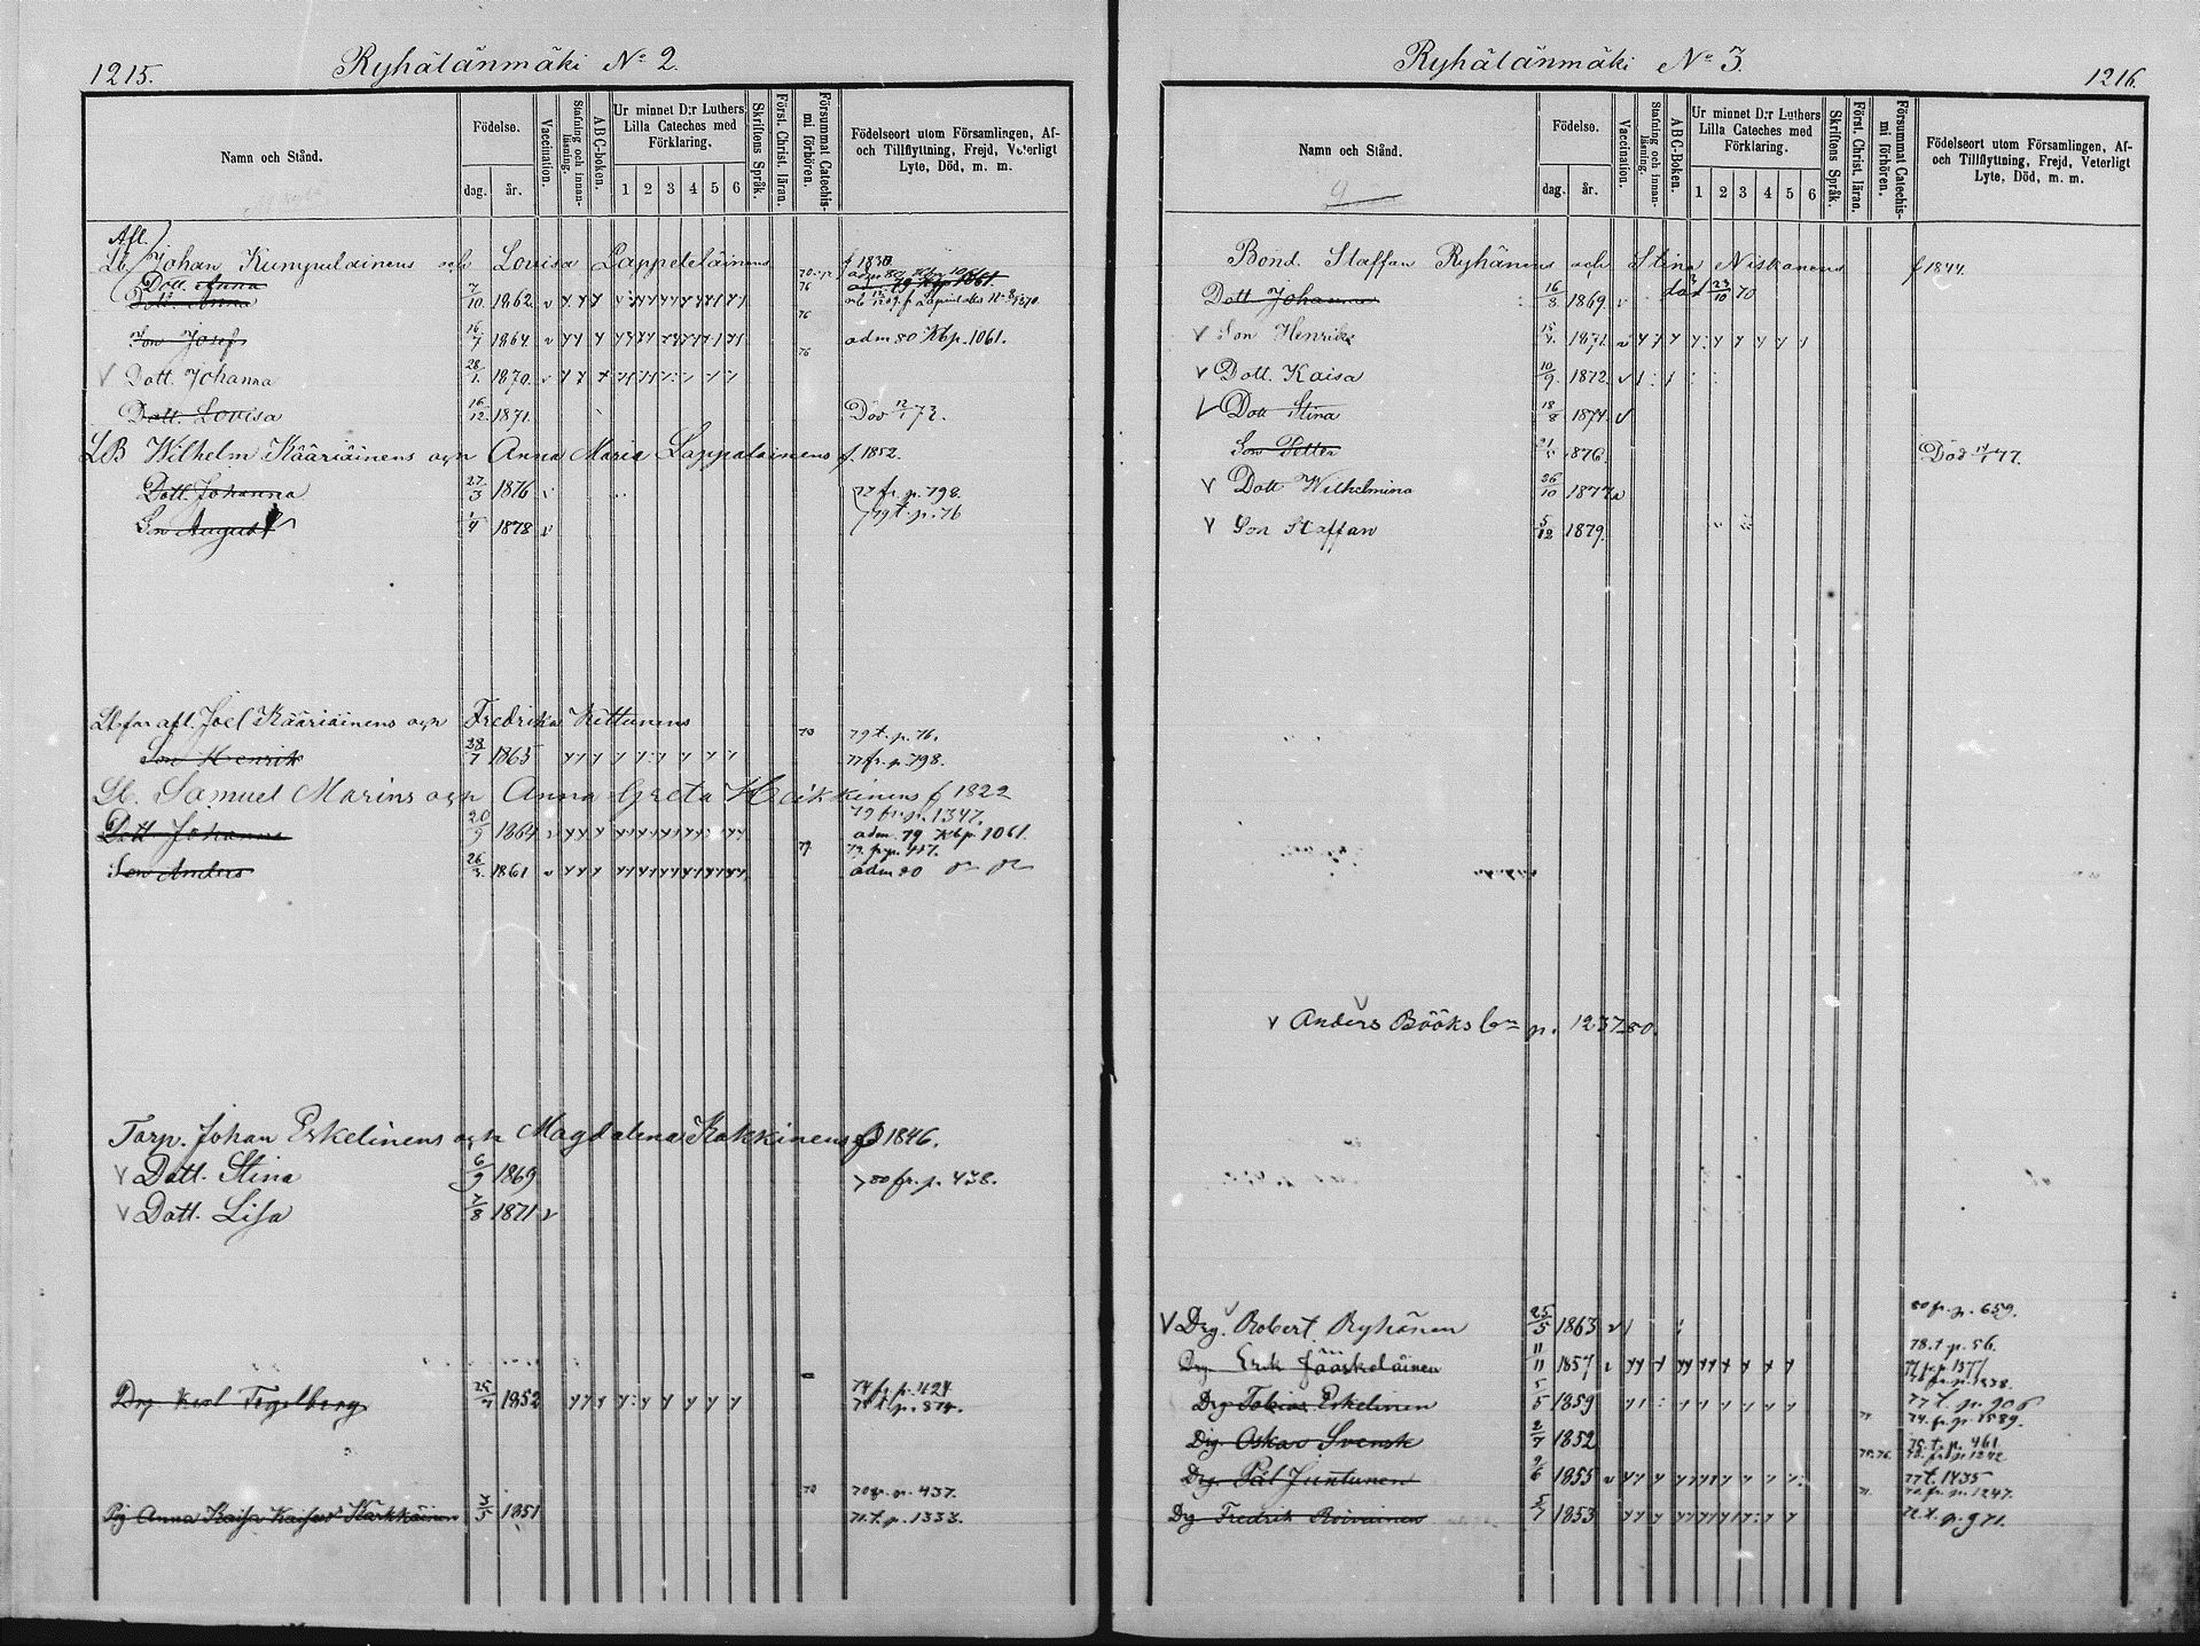 1215.
Ryhälänmäki No 2.
Namn och Stånd.
Födelse.
dag.
år.
Vaccination.
Stafning och innan-läsning.
ABC-boken.
Ur minnet D:r Luthers Lilla Cateches med Förklaring.
1 2 3 4 5 6
Skriftens Språk.
Först. Christ. läran.
Försummat Catechismi förhören.
Födelseort utom Församlingen, Af- och Tillflyttning, Frejd, Veterligt Lyte, Död, m. m.
Afl.
Lb. Johan Kumpulainens och Lovisa Lappeteläinens f 1830
Dott. Anna
Dott. Anna 7/10 1862 v
Son Josef 16/7 1864 v adm 80 Kbp. 1061.
V Dott. Johanna 28/1 1870 v
Dott. Lovisa 16/12 1871. Död 12/1 73.
LB Wilhelm Kääriäinens och Anna Maria Lappalainens f. 1852.
Dott. Johanna 27/3 1876 77 fr. p. 798.
Son August 1/4 1878 v 79 t. p. 76
Lb far afl. Joel Kääriäinens och Fredrika Kettunens
70 79 t. p. 76.
Son Henrik 28/7 1865 77 fr. p. 798.
Lb. Samuel Marins och Anna Greta Heikkinens f 1822
79 fr. p. 1347.
Dott Johanna 20/9 1864 v adm. 79 Kbp. 1061.
79. fr. p. 417.
Son Anders 26/3 1861 v adm 80
Torp. Johan Eskelinens och Magdalena Kokkinens f 1846.
V Dott. Stina 6/9 1869 80 fr. p. 438.
V Dott. Lisa 7/8 1871 v
74 fr. p. 1124
Drg Karl Fogelberg 25/7 1852
70 70 fr. p. 437.
Pig Anna Kaisa Karkkäinen 3/5 1851 71. t. p. 1333.
Ryhälänmäki No 3.
1216.
Namn och Stånd.
Födelse.
dag.
år.
Vaccination.
Stafning och innan-läsning.
ABC-Boken.
Ur minnet D:r Luthers Lilla Cateches med Förklaring.
1 2 3 4 5 6
Skriftens Språk.
Först. Christ. läran.
Försummat Catechismi förhören.
Födelseort utom Församlingen, Af- och Tillflyttning, Frejd, Veterligt Lyte, Död, m. m.
Bond. Staffan Ryhänens och Stina Niskanens f 1844.
Dott Johanna 16/8 1869 v död 23/10 70
V Son Henrik 15/9 1871. v
V Dott. Kaisa 10/9. 1872. v
V Dott Stina 18/8 1874. v
Son Petter 21/5 1876. Död 77.
V Dott Wilhelmina 26/10 1877 v
V Son Staffan 5/12 1879.
V Anders Bööks p. 1237 80.
80 fr. p. 659.
V Drg. Robert Ryhänen 25/5 1863 v
78. t p. 56.
Drg Erik Jääskeläinen 11/11 1857
Drg Tobias Eskelinen 5/5 1859 77 t. p. 906
74. fr. p. 1589.
Drg Oskar Svensk 2/7 1852 75. t. p. 461
Drg. Pål Juntunen 9/6 1855 v 77 t. 1435
70. fr. p. 1247.
Drg Fredrik Roivainen 5/7 1853 72. t. p. 971.